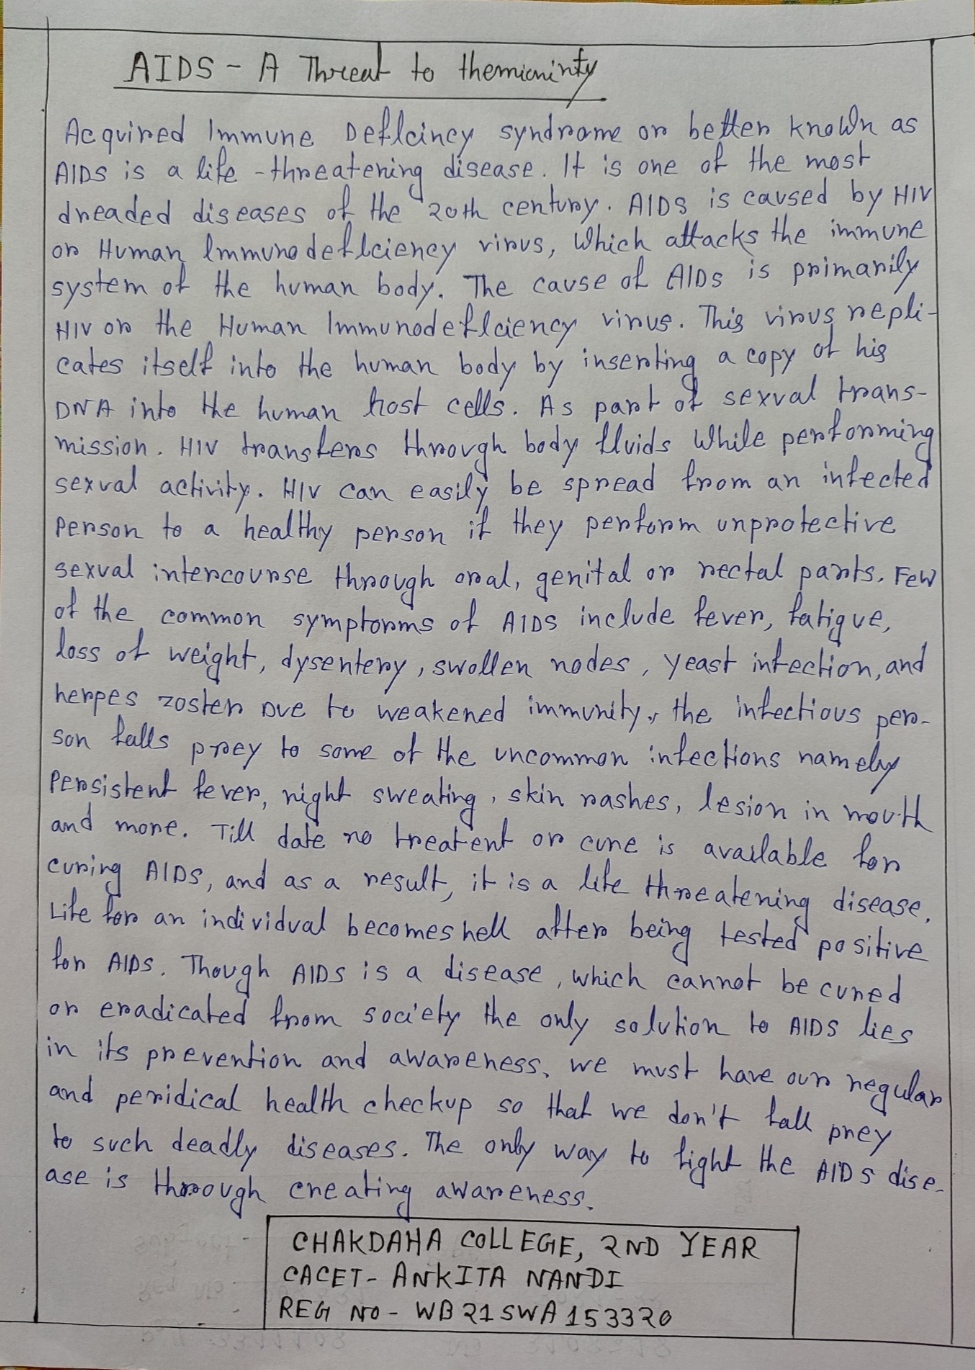 AIDS - A Threat to themicninty
Acquired Immune Deficincy syndrome or better known as
AIDS is a life - threatening disease. It is one of the most
dreaded diseases of the 20th century. AIDS is caused by HIV
or Human Immunodeficiency virus, which attacks the immune
system of the human body. The cause of AIDS is primarily
HIV or the Human Immunodeficiency virus. This virus repli-
cates itself into the human body by inserting a copy of his
DNA into the human host cells. As part of sexual trans-
mission. HIV transfers through body fluids While performing
sexual activity. HIV can easily be spread from an infected
Person to a healthy person if they perform unprotective
sexual intercourse through oral, genital or rectal parts. Few
of the common symptorms of AIDS include fever, fatigue,
loss of weight, dysentery, swollen nodes, yeast infection, and
herpes zoster Due to weakened immunity, the infectious per-
son falls prey to some of the uncommon infections namely
Persistent fever, night sweating, skin rashes, lesion in mouth
and more. Till date no treatent or cure is available for
curing AIDS, and as a result, it is a life threatening disease.
Life for an individual becomes hell after being tested positive
for AIDS. Though AIDS is a disease, which cannot be cured
or eradicated from society the only solution to AIDS lies
in its prevention and awareness. we must have our regular
and peridical health checkup so that we don't fall prey
to such deadly diseases. The only way to fight the AIDS dise-
ase is through creating awareness.
CHAKDAHA COLLEGE, 2ND YEAR
CACET- ANKITA NANDI
REG NO - WB21SWA153320